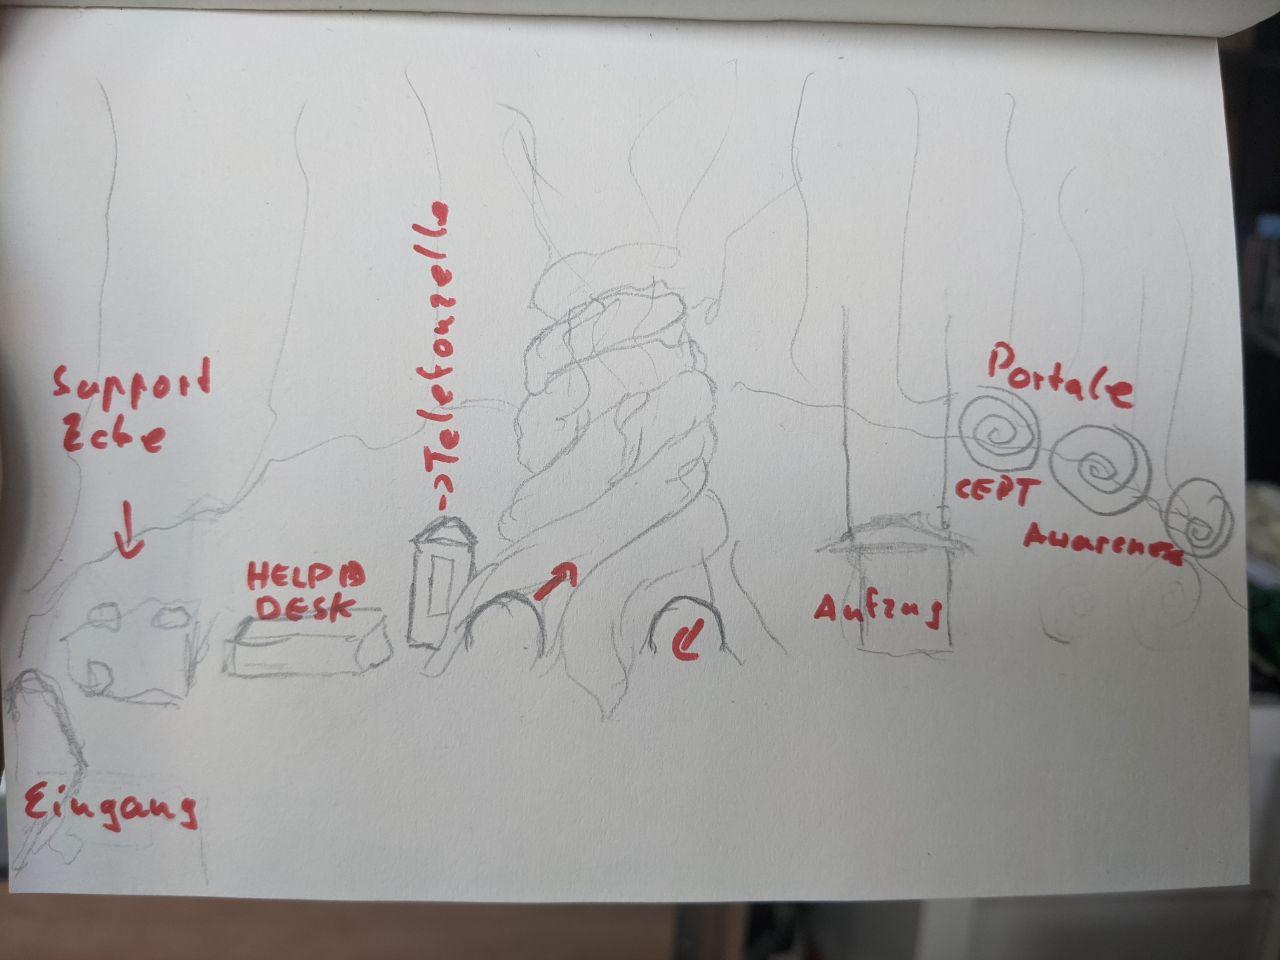 Support
Ecke
HELP
DESK
->Telefonzelle
Aufzug
Portale
CERT
Awareness
Eingang